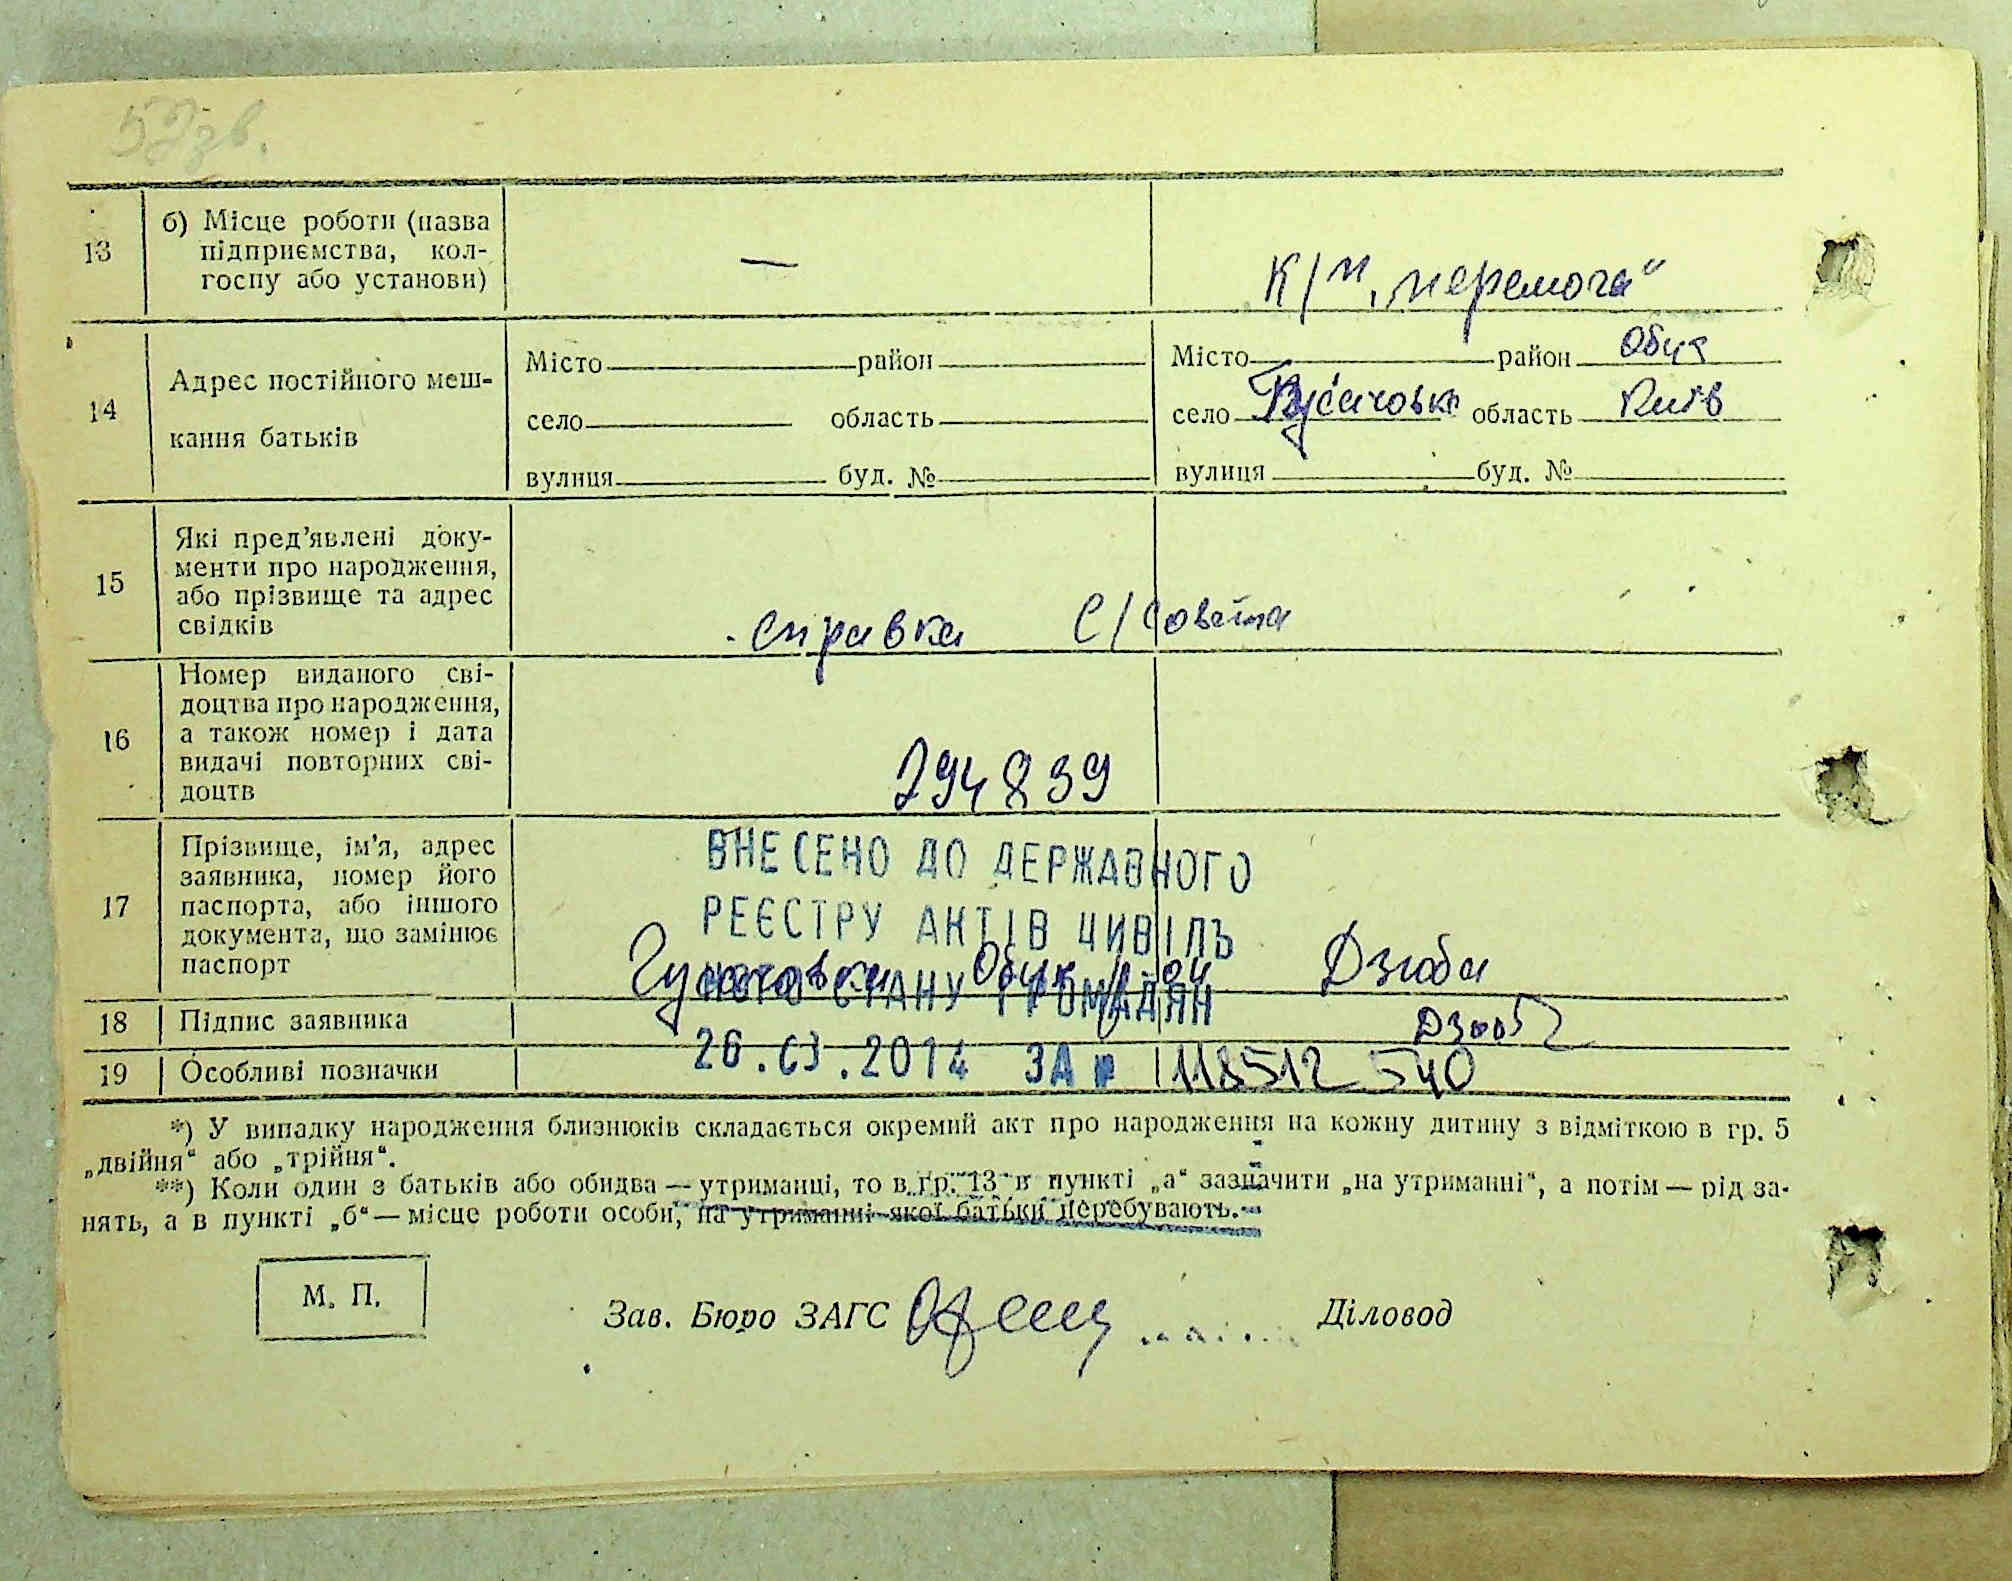 52зв.
13
б) Місце роботи (назва
підприємства, кол-
госпу або установи)
—
К/п „перемога“
14
Адрес постійного меш-
кання батьків
Місто район
село область
вулиця буд. №
Місто район Обух
село Гусачовка область Київ
вулиця буд. №
15
Які пред’явлені доку-
менти про народження,
або прізвище та адрес
свідків
справка С/Совета
16
Номер виданого сві-
доцтва про народження,
а також номер і дата
видачі повторних сві-
доцтв
294839
17
Прізвище, ім’я, адрес
заявника, номер його
паспорта, або іншого
документа, що замінює
паспорт
ВНЕСЕНО ДО ДЕРЖАВНОГО
РЕЄСТРУ АКТІВ ЦИВІЛЬ
Гусачовка Обух Дзюба
НОГО СТАНУ ГРОМАДЯН
18
Підпис заявника
Дзюба
19
Особливі позначки
26.03.2014 ЗА № 118512 540
*) У випадку народження близнюків складається окремий акт про народження на кожну дитину з відміткою в гр. 5
„двійня“ або „трійня“.
**) Коли один з батьків або обидва — утриманці, то в гр. 13 в пункті „а“ зазначити „на утриманні“, а потім — рід за-
нять, а в пункті „б“ — місце роботи особи, на утриманні якої батьки перебувають.
М. П.
Зав. Бюро ЗАГС Діловод